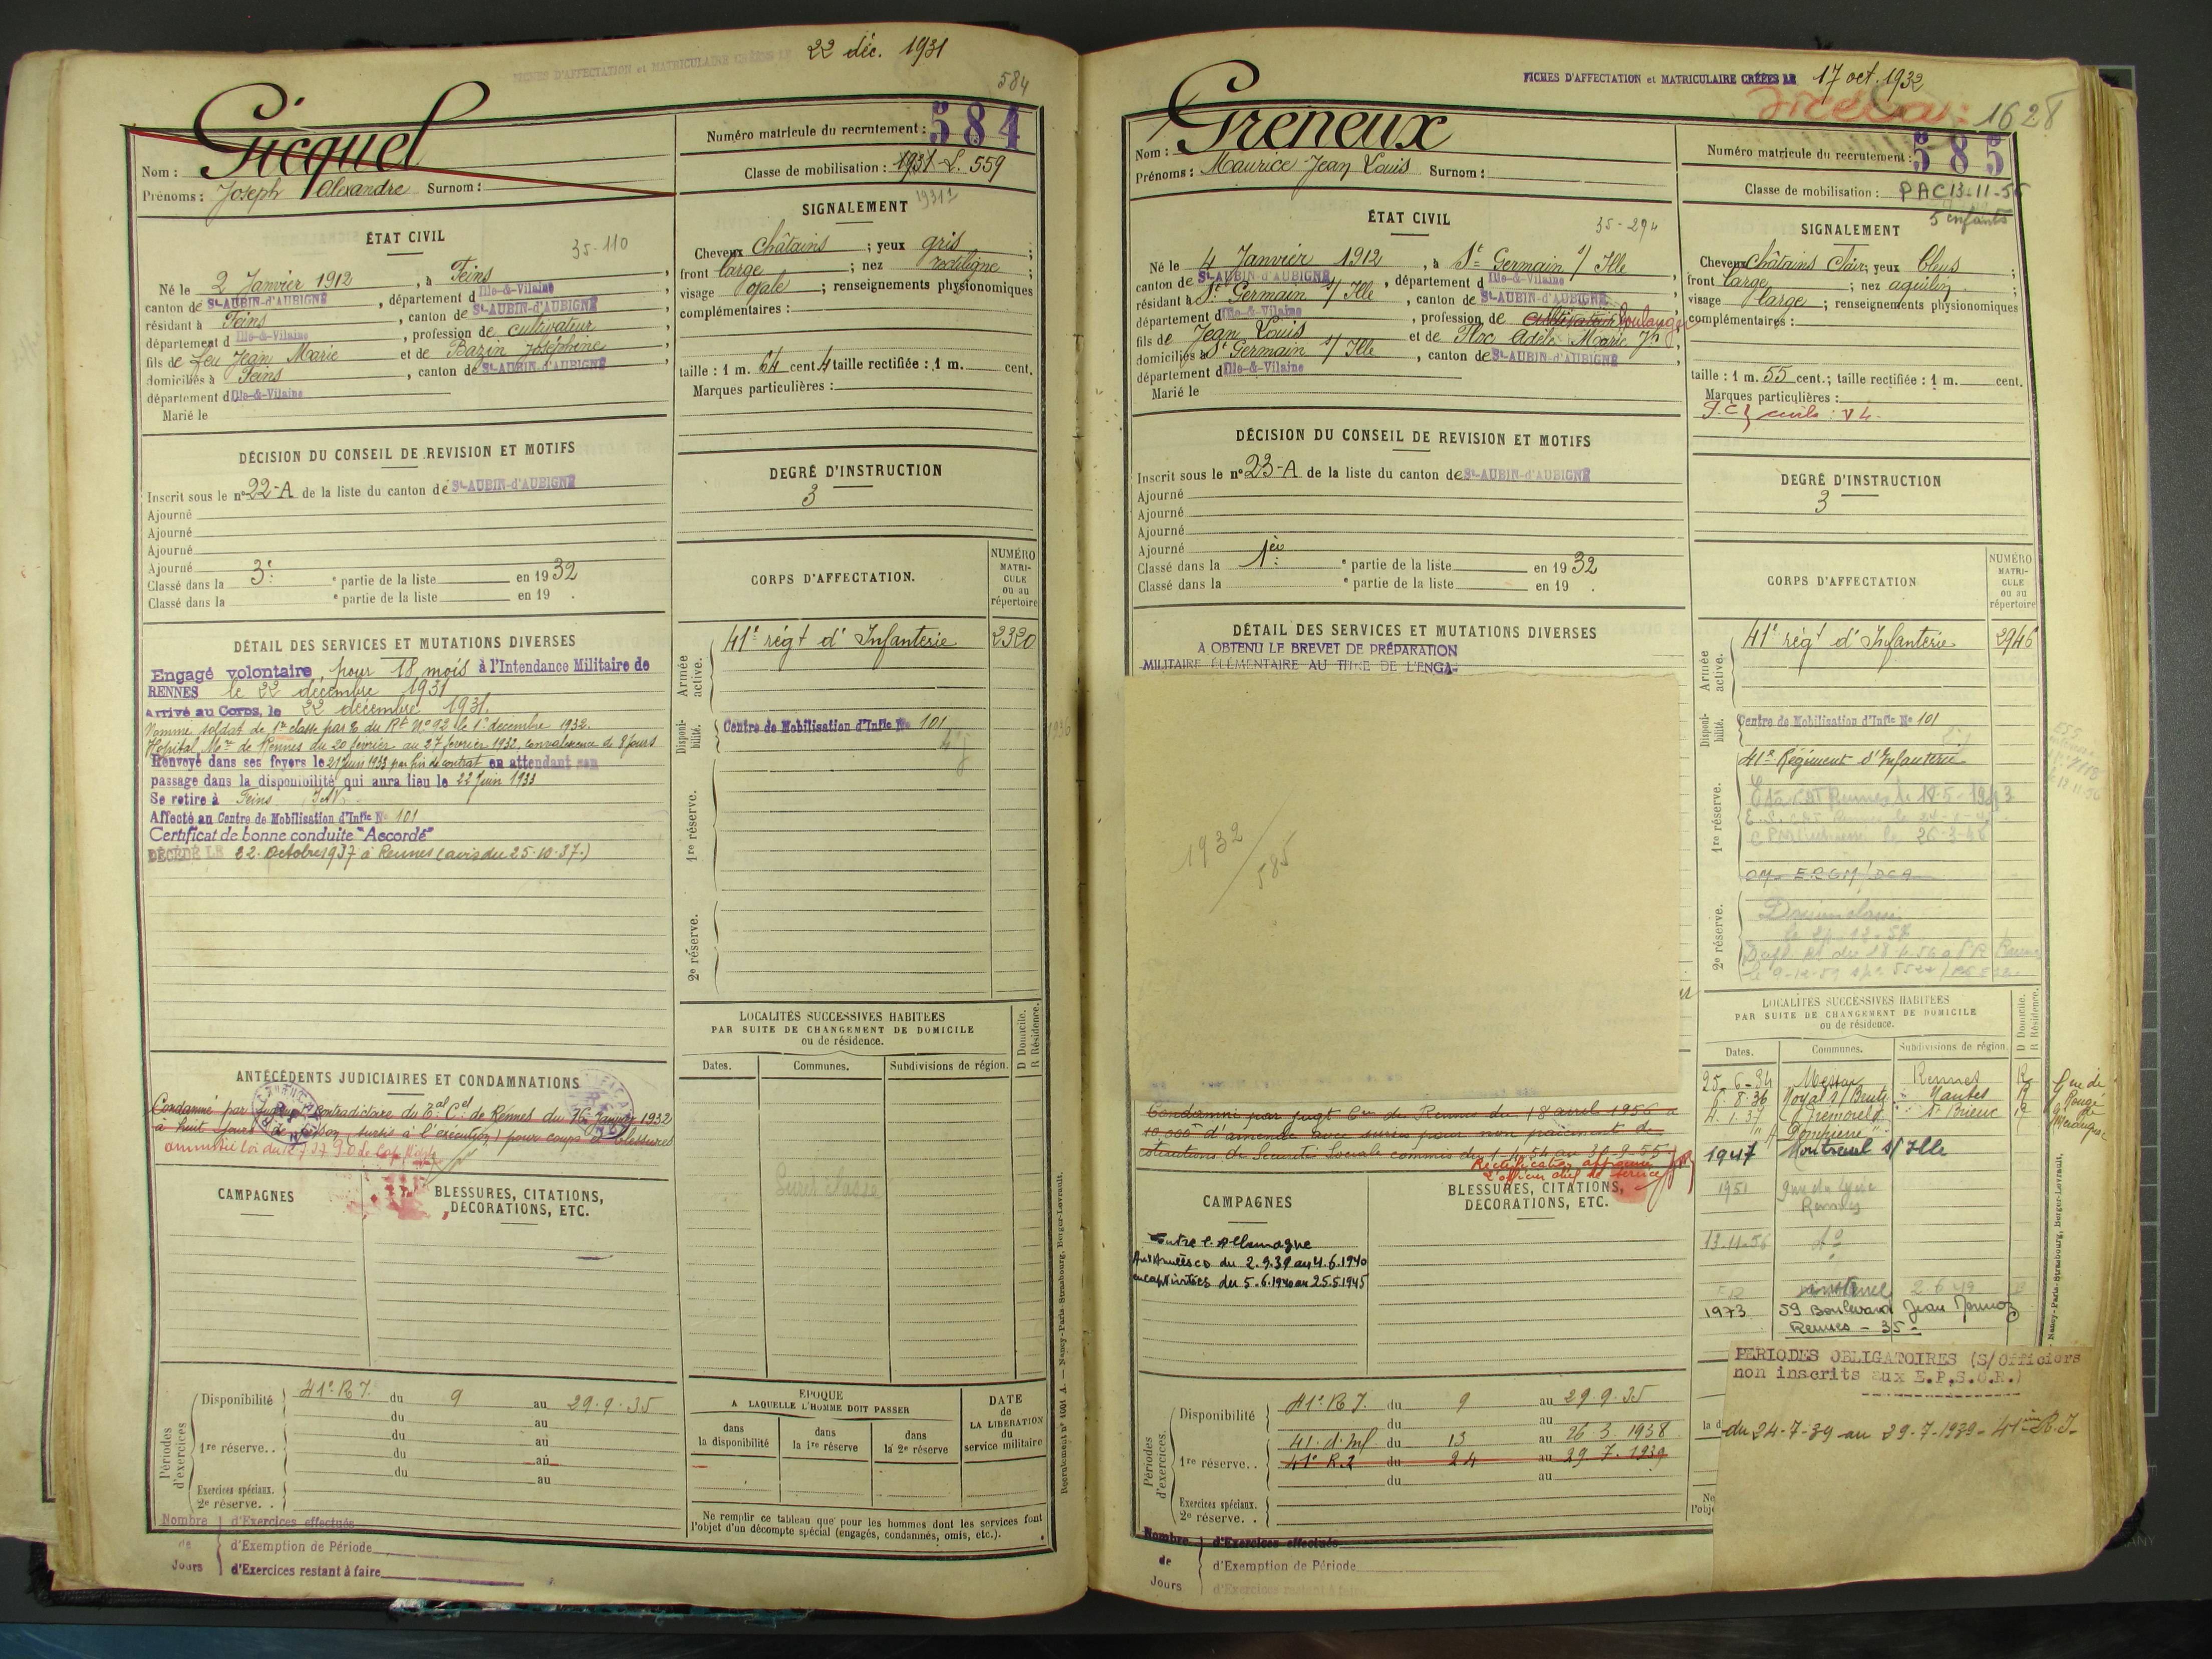 FICHES D'AFFECTATION et MATRICULAIRE CRÉÉES LE 22 déc. 1931
584
Nom : Gicquel
Prénoms : Joseph Alexandre Surnom :
Numéro matricule du recrutement : 584
Classe de mobilisation : 1931-L. 559
ÉTAT CIVIL
35-110
Né le 2 Janvier 1912, à Feins,
canton de St-AUBIN-d'AUBIGNÉ, département d Ille-&-Vilaine,
résidant à Feins, canton de St-AUBIN-d'AUBIGNÉ,
département d Ille-&-Vilaine, profession de cultivateur,
fils de feu Jean Marie et de Bazin Joséphine,
domiciliés à Feins, canton de St-AUBIN-d'AUBIGNÉ,
département d Ille-&-Vilaine
Marié le
SIGNALEMENT
Cheveux châtains ; yeux gris ;
front large ; nez rectiligne ;
visage ovale ; renseignements physionomiques
complémentaires :
taille : 1 m. 64 cent. 4 taille rectifiée : 1 m. cent.
Marques particulières :
DÉCISION DU CONSEIL DE REVISION ET MOTIFS
Inscrit sous le n° 22-A de la liste du canton de St-AUBIN-d'AUBIGNÉ
Ajourné
Ajourné
Ajourné
Ajourné
Classé dans la 3e ° partie de la liste en 1932
Classé dans la ° partie de la liste en 19 .
DEGRÉ D'INSTRUCTION
3
CORPS D'AFFECTATION.
NUMÉRO MATRI-CULE ou au répertoire
Armée active.
41e régt d'Infanterie 2320
Disponibilité.
Centre de Mobilisation d'Infie No 101
1re réserve.
2e réserve.
DÉTAIL DES SERVICES ET MUTATIONS DIVERSES
Engagé volontaire, pour 18 mois à l'Intendance Militaire de
RENNES le 22 décembre 1931
Arrivé au Corps, le 22 décembre 1931.
Nommé soldat de 1re classe par O du Rt N° 92 le 1er décembre 1932.
Hôpital Mre de Rennes du 20 février au 27 février 1932 convalescence de 8 jours
Renvoyé dans ses foyers le 21 Juin 1933 par fin de contrat en attendant son
passage dans la disponibilité qui aura lieu le 22 Juin 1933
Se retire à Feins I&V
Affecté au Centre de Mobilisation d'Infie No 101
Certificat de bonne conduite "Accordé"
DÉCÉDÉ LE 22 Octobre 1937 à Rennes (avis du 25-10-37.)
LOCALITÉS SUCCESSIVES HABITÉES
PAR SUITE DE CHANGEMENT DE DOMICILE
ou de résidence.
D Domicile.
R Résidence.
Dates. Communes. Subdivisions de région.
ANTÉCÉDENTS JUDICIAIRES ET CONDAMNATIONS
Condamné par Jugement contradictoire du Tal Cel de Rennes du 16 Janvier 1932
à huit jours de prison sursis à l'exécution pour coups et blessures
CAMPAGNES
BLESSURES, CITATIONS,
DÉCORATIONS, ETC.
Périodes d'exercices
Disponibilité 41e R.I. du 9 au 29.9.35
du au
1re réserve.. du au
du au
du au
Exercices spéciaux.
2e réserve. .
Nombre de Jours
d'Exercices effectués
d'Exemption de Période
d'Exercices restant à faire
ÉPOQUE
A LAQUELLE L'HOMME DOIT PASSER
dans la disponibilité
dans la 1re réserve
dans la 2e réserve
DATE de LA LIBÉRATION du service militaire
Ne remplir ce tableau que pour les hommes dont les services font
l'objet d'un décompte spécial (engagés, condamnés, omis, etc.).
Recrutement n° 1601 A. — Nancy-Paris-Strasbourg, Berger-Levrault.
FICHES D'AFFECTATION et MATRICULAIRE CRÉÉES LE 17 oct. 1932
1628
Nom : Gréneux
Prénoms : Maurice Jean Louis Surnom :
Numéro matricule du recrutement : 585
Classe de mobilisation : PAC 13-11-56
5 enfants
ÉTAT CIVIL
35-294
Né le 4 Janvier 1912, à St Germain s/ Ille,
canton de St-AUBIN-d'AUBIGNÉ, département d Ille-&-Vilaine,
résidant à St Germain s/ Ille, canton de St-AUBIN-d'AUBIGNÉ,
département d Ille-&-Vilaine, profession de cultivateur boulanger
fils de Jean Louis et de Floc Adèle Marie Jh,
domiciliés à St Germain s/ Ille, canton de St-AUBIN-d'AUBIGNÉ,
département d Ille-&-Vilaine
Marié le
SIGNALEMENT
Cheveux châtains clair ; yeux bleus ;
front large ; nez aquilin ;
visage large ; renseignements physionomiques
complémentaires :
taille : 1 m. 55 cent. ; taille rectifiée : 1 m. cent.
Marques particulières :
civils : VL.
DÉCISION DU CONSEIL DE REVISION ET MOTIFS
Inscrit sous le n° 23-A de la liste du canton de St-AUBIN-d'AUBIGNÉ
Ajourné
Ajourné
Ajourné
Ajourné
Classé dans la 1ère ° partie de la liste en 1932
Classé dans la ° partie de la liste en 19 .
DEGRÉ D'INSTRUCTION
3
CORPS D'AFFECTATION
NUMÉRO MATRI-CULE ou au répertoire
Armée active.
41e régt d'Infanterie 2946
Disponibilité.
Centre de Mobilisation d'Infie No 101
1re réserve.
41e Régiment d'Infanterie
2e réserve.
DÉTAIL DES SERVICES ET MUTATIONS DIVERSES
A OBTENU LE BREVET DE PRÉPARATION
MILITAIRE ÉLÉMENTAIRE AU TITRE DE L'ENGA-
1932/585
LOCALITÉS SUCCESSIVES HABITÉES
PAR SUITE DE CHANGEMENT DE DOMICILE
ou de résidence.
D Domicile.
R Résidence.
Dates. Communes. Subdivisions de région.
25-6-34 Messac Rennes R
6.8.36 Noyal s/ Brutz " Nantes R
4.1.37 Trémorel " St Brieuc R
1947 Montreuil s/ Ille
1951 Rennes
13.11.56 do
1973 59 Boulevard Jean Mermoz
Rennes - 35 -
Condamné par jugt Cre de Rennes du 18 avril 1956 à
10.000 d'amende avec sursis pour non paiement de
cotisations de Sécurité Sociale commis du 1-4-54 au 30-9-55
Rectification approuvée
L'officier chef de service
CAMPAGNES
Contre l'Allemagne
Aux Armées du 2.9.39 au 4.6.1940
en captivité du 5.6.1940 au 25.5.1945
BLESSURES, CITATIONS,
DÉCORATIONS, ETC.
Périodes d'exercices.
Disponibilité 41e R.I. du 9 au 29.9.35
du au
1re réserve.. 41 d'Inf du 13 au 26 3 1938
41e R.I du 24 au 29.7.1939
du au
Exercices spéciaux.
2e réserve. .
Nombre de Jours
d'Exercices effectués
d'Exemption de Période
d'Exercices restant à faire
PERIODES OBLIGATOIRES (S/Officiers
non inscrits aux E.P.S.O.R.)
du 24-7-39 au 29-7-1939 - 41ème R.I-
Nancy-Paris-Strasbourg, Berger-Levrault.